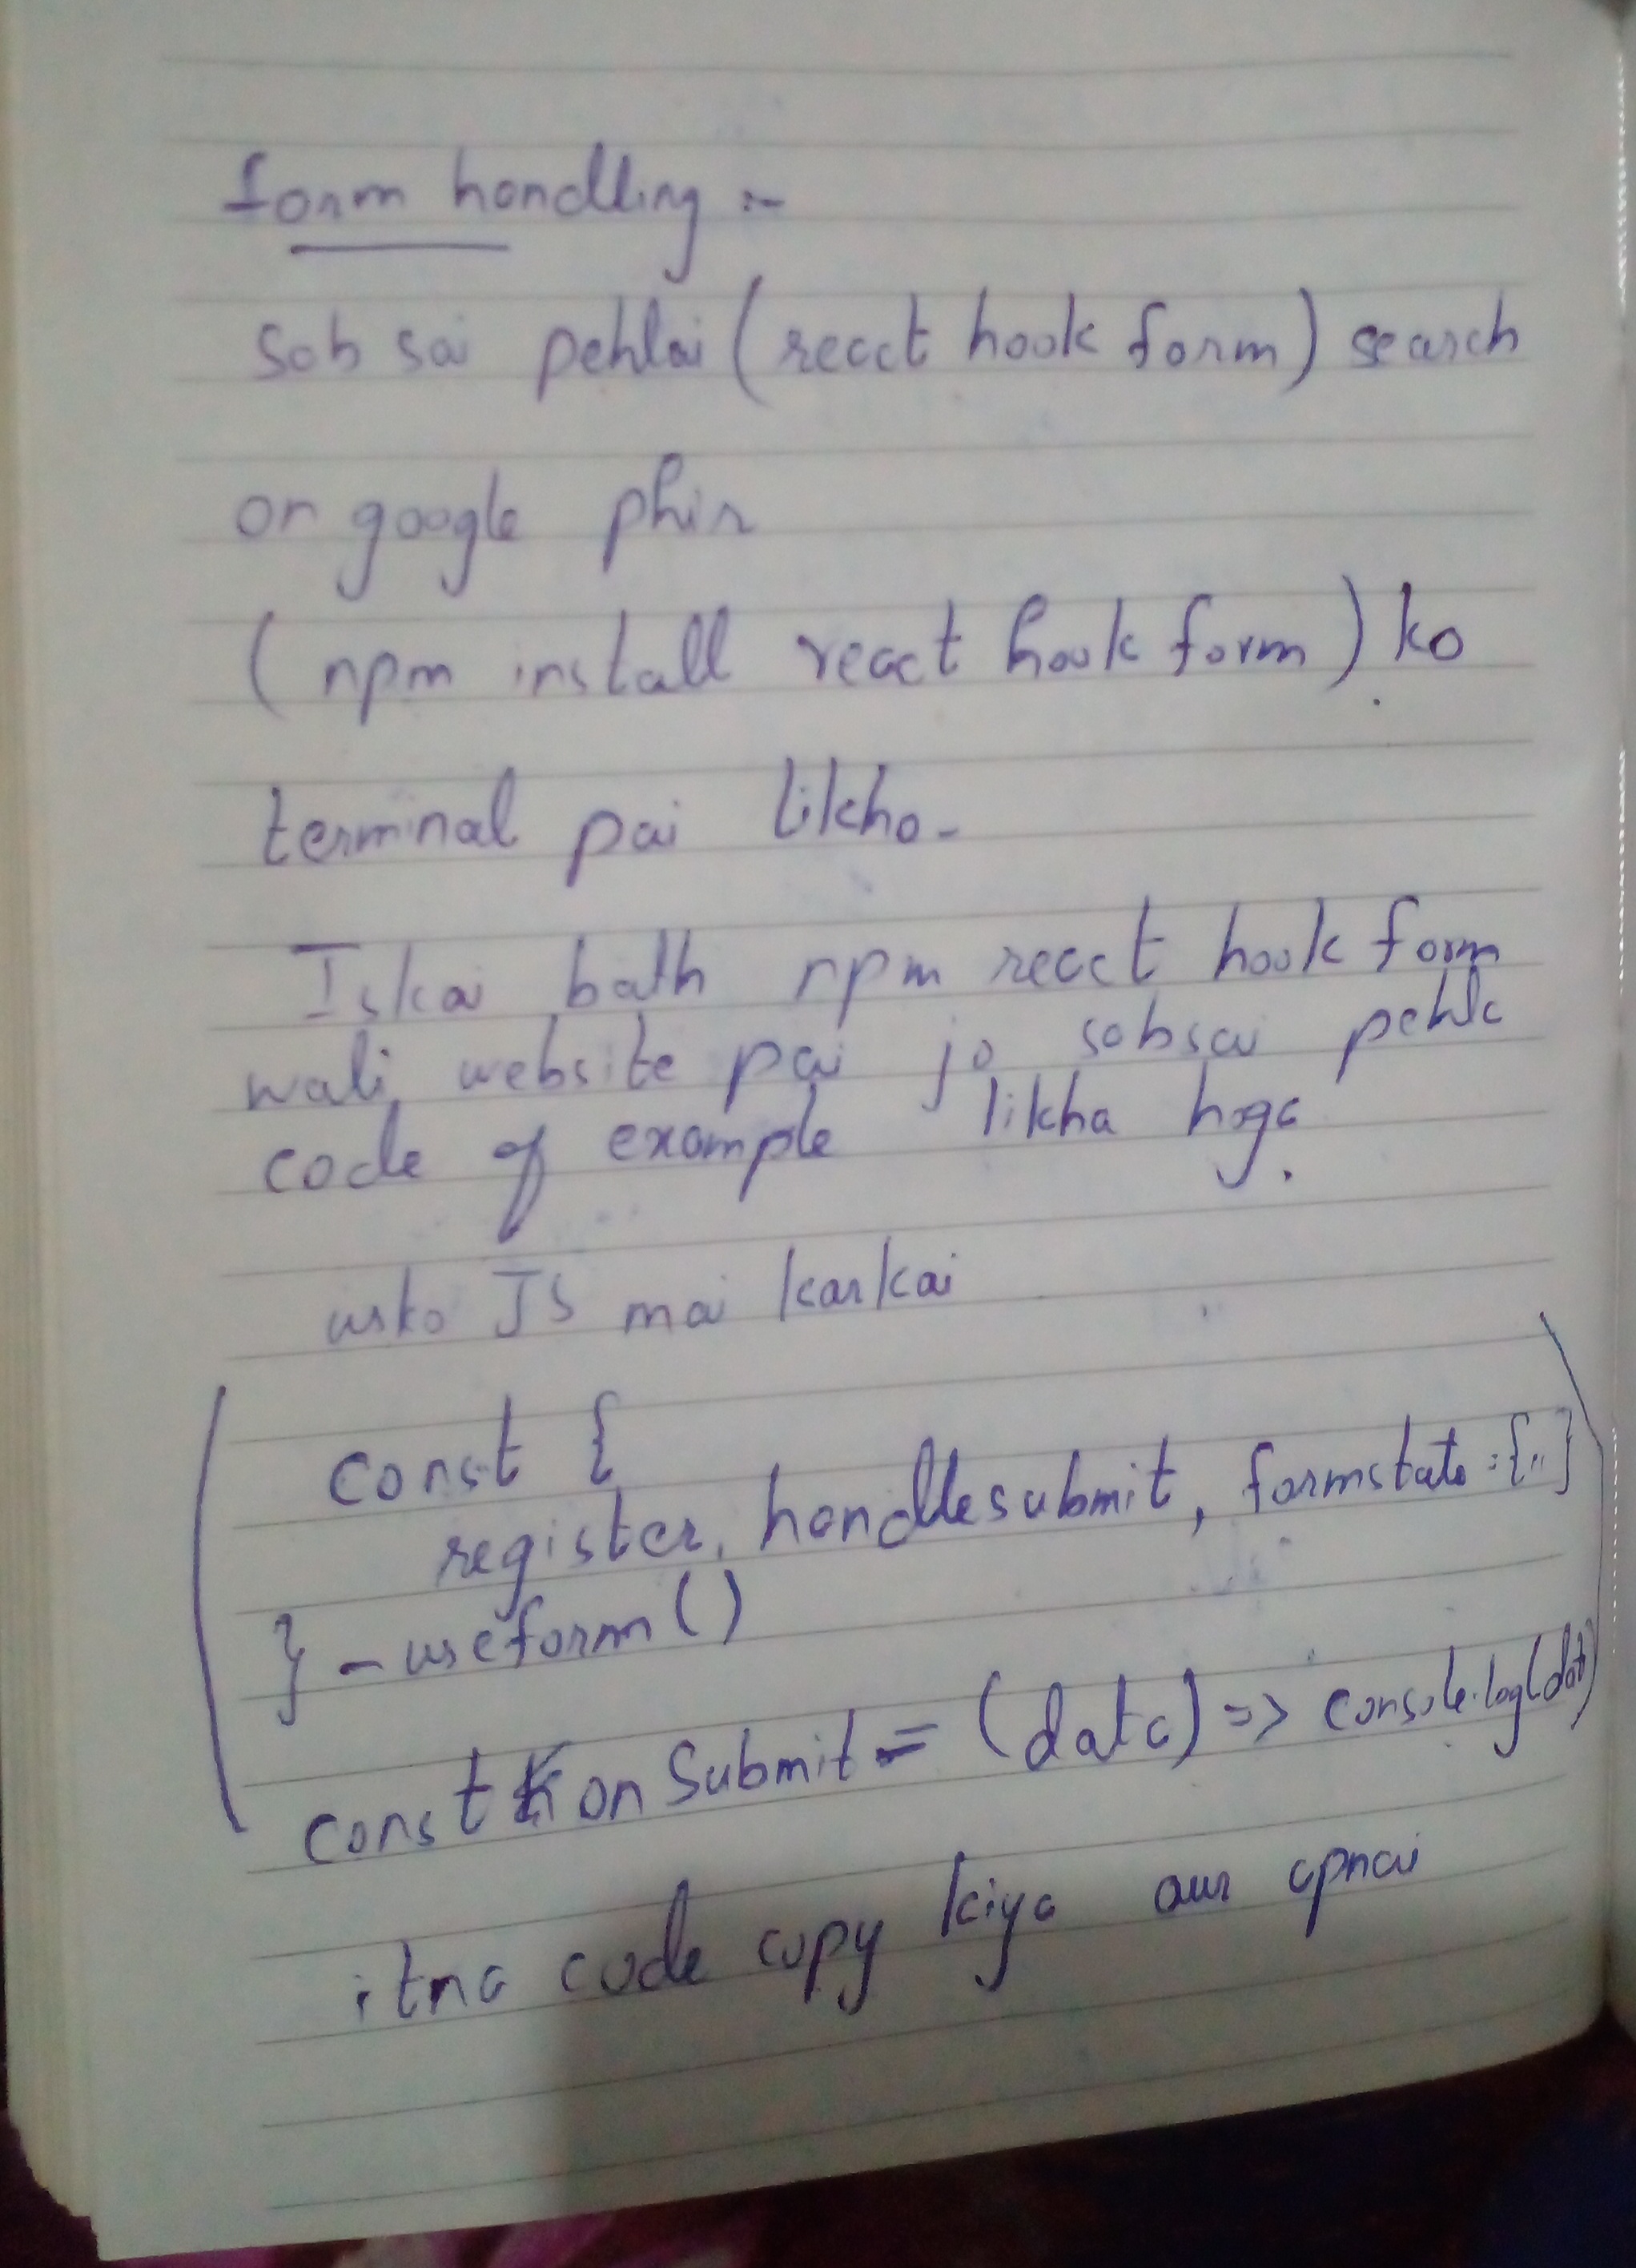 form handling :-
sab sai pehlai (react hook form) search
on google phir
(npm install react hook form) ko
terminal pai likho.
Iskai bath npm react hook form
wali website pai jo sabsai pehla
code of example likha hoga.
usko JS mai karkai
const {
register, handlesubmit, formstate:{..}
} - useform()
const onSubmit = (data) => console.log(dat)
itna code copy kiya aur apnai